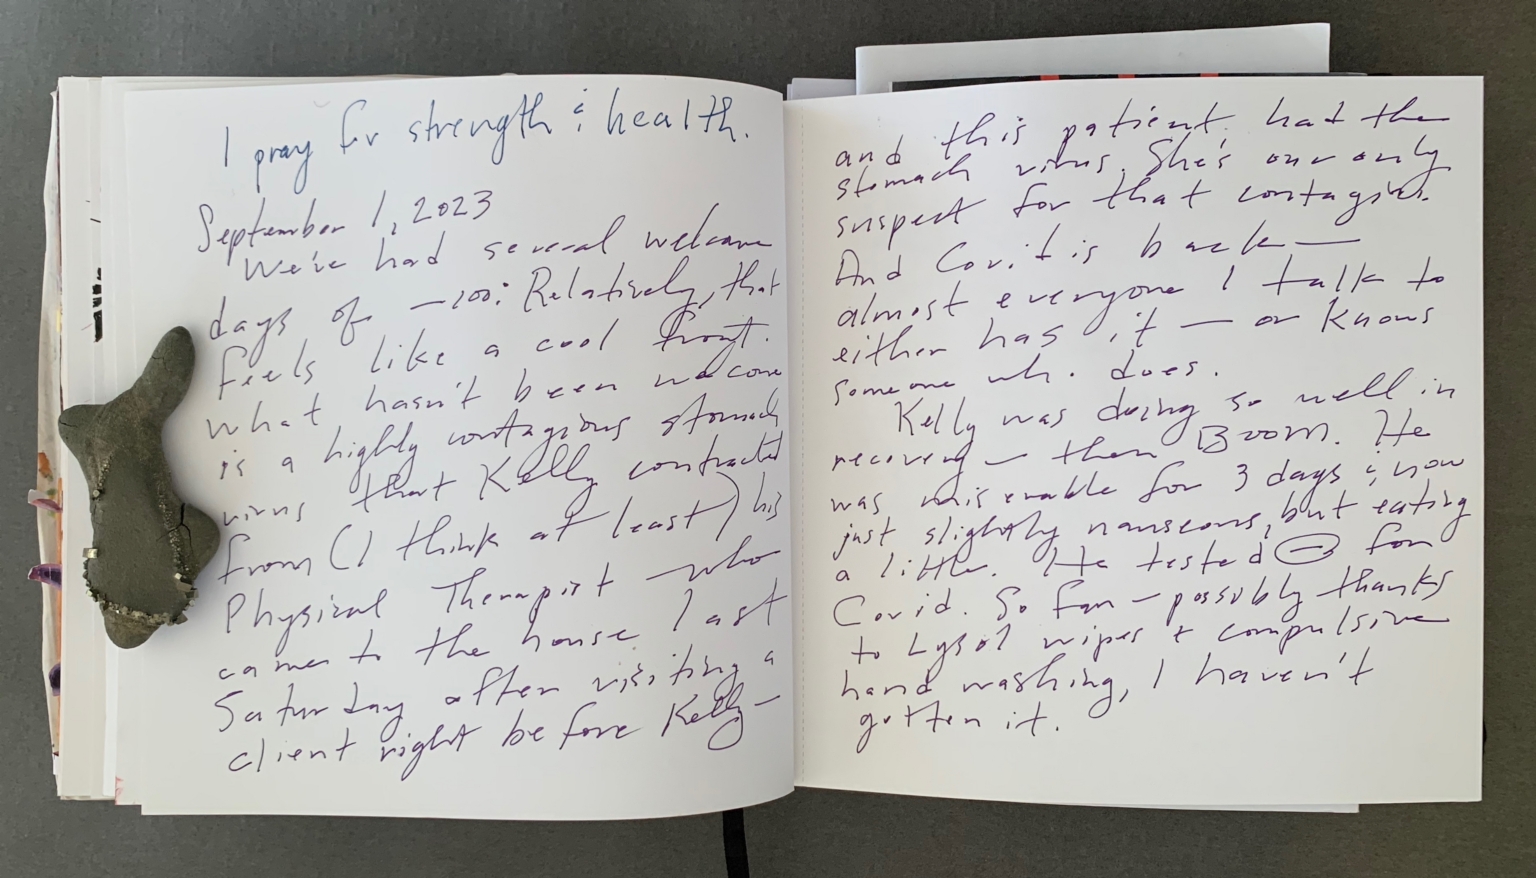 I pray for strength & health.
September 1, 2023
We've had several welcome
days of –100: Relatively, that
feels like a cool front.
What hasn't been welcome
is a highly contagious stomach
virus that Kelly contracted
from (I think at least) his
Physical Therapist who
came to the house last
Saturday after visiting a
client right before Kelly —
and this patient had the
stomach virus. She's our only
suspect for that contagion.
And Covid is back —
almost everyone I talk to
either has it — or knows
someone who does.
Kelly was doing so well in
recovery — then BOOM. He
was miserable for 3 days & now
just slightly nauseous, but eating
a little. He tested ⊖ for
Covid. So far — possibly thanks
to Lysol wipes + compulsive
hand washing, I haven't
gotten it.